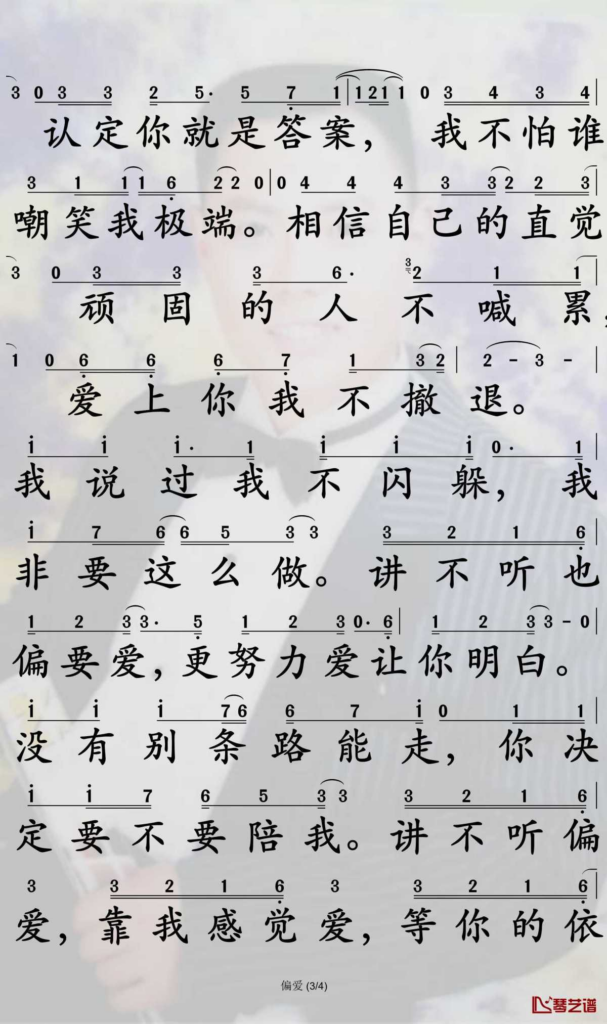 3 0 3 3 2 5· 5 7 1 | 1 2 1 1 0 3 4 3 4
认定你就是答案， 我不怕谁
3 1 1 1 1 6 2 2 0 | 0 4 4 4 3 3 2 2 3
嘲笑我极端。相信自己的直觉
3 0 3 3 3 6· 3 2 1 1 |
顽固的人不喊累，
1 0 6 6 6 7 1 3 2 | 2 - 3 - |
爱上你我不撤退。
i i i· 1 i i i 0· 1 |
我说过我不闪躲，我
i 7 6 6 5 3 3 3 2 1 6 |
非要这么做。讲不听也
1 2 3 3· 5 1 2 3 0· 6 | 1 2 3 3 - 0 |
偏要爱，更努力爱让你明白。
i i i 7 6 6 7 i 0 1 1 |
没有别条路能走，你决
i i 7 6 5 3 3 3 2 1 6 |
定要不要陪我。讲不听偏
3 3 2 1 6 3 3 2 1 6 |
爱，靠我感觉爱，等你的依
偏爱 (3/4)
琴艺谱